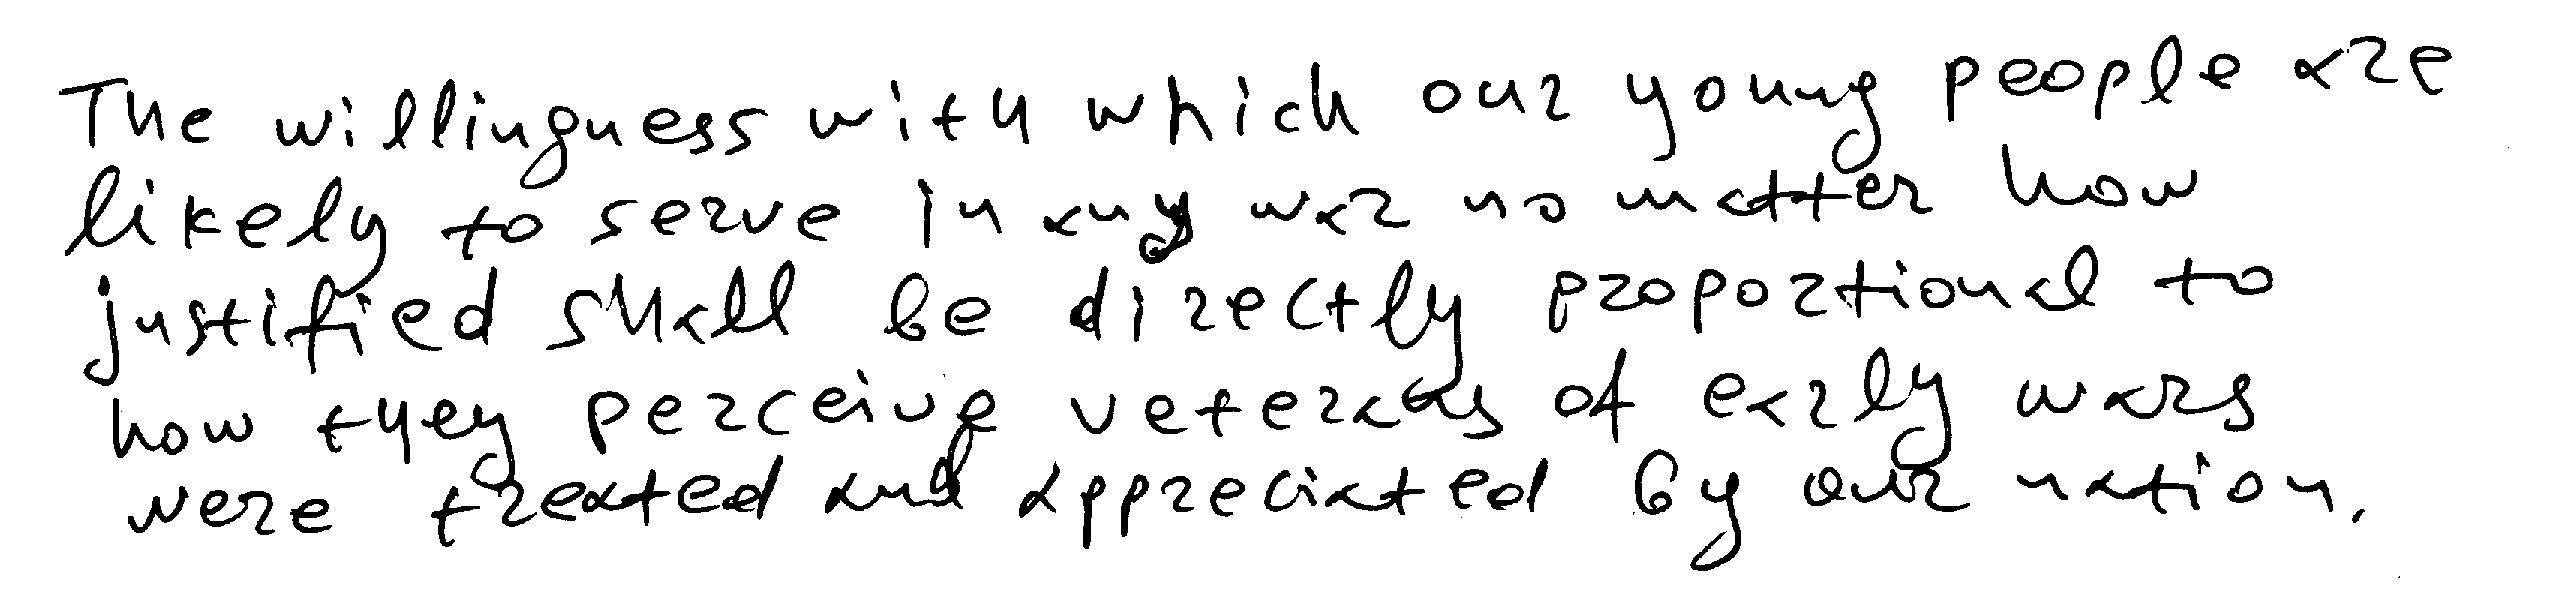 The willingness with which our young people are
likely to serve in any war no matter how
justified shall be directly proportional to
how they perceive veterans of early wars
were treated and appreciated by our nation.